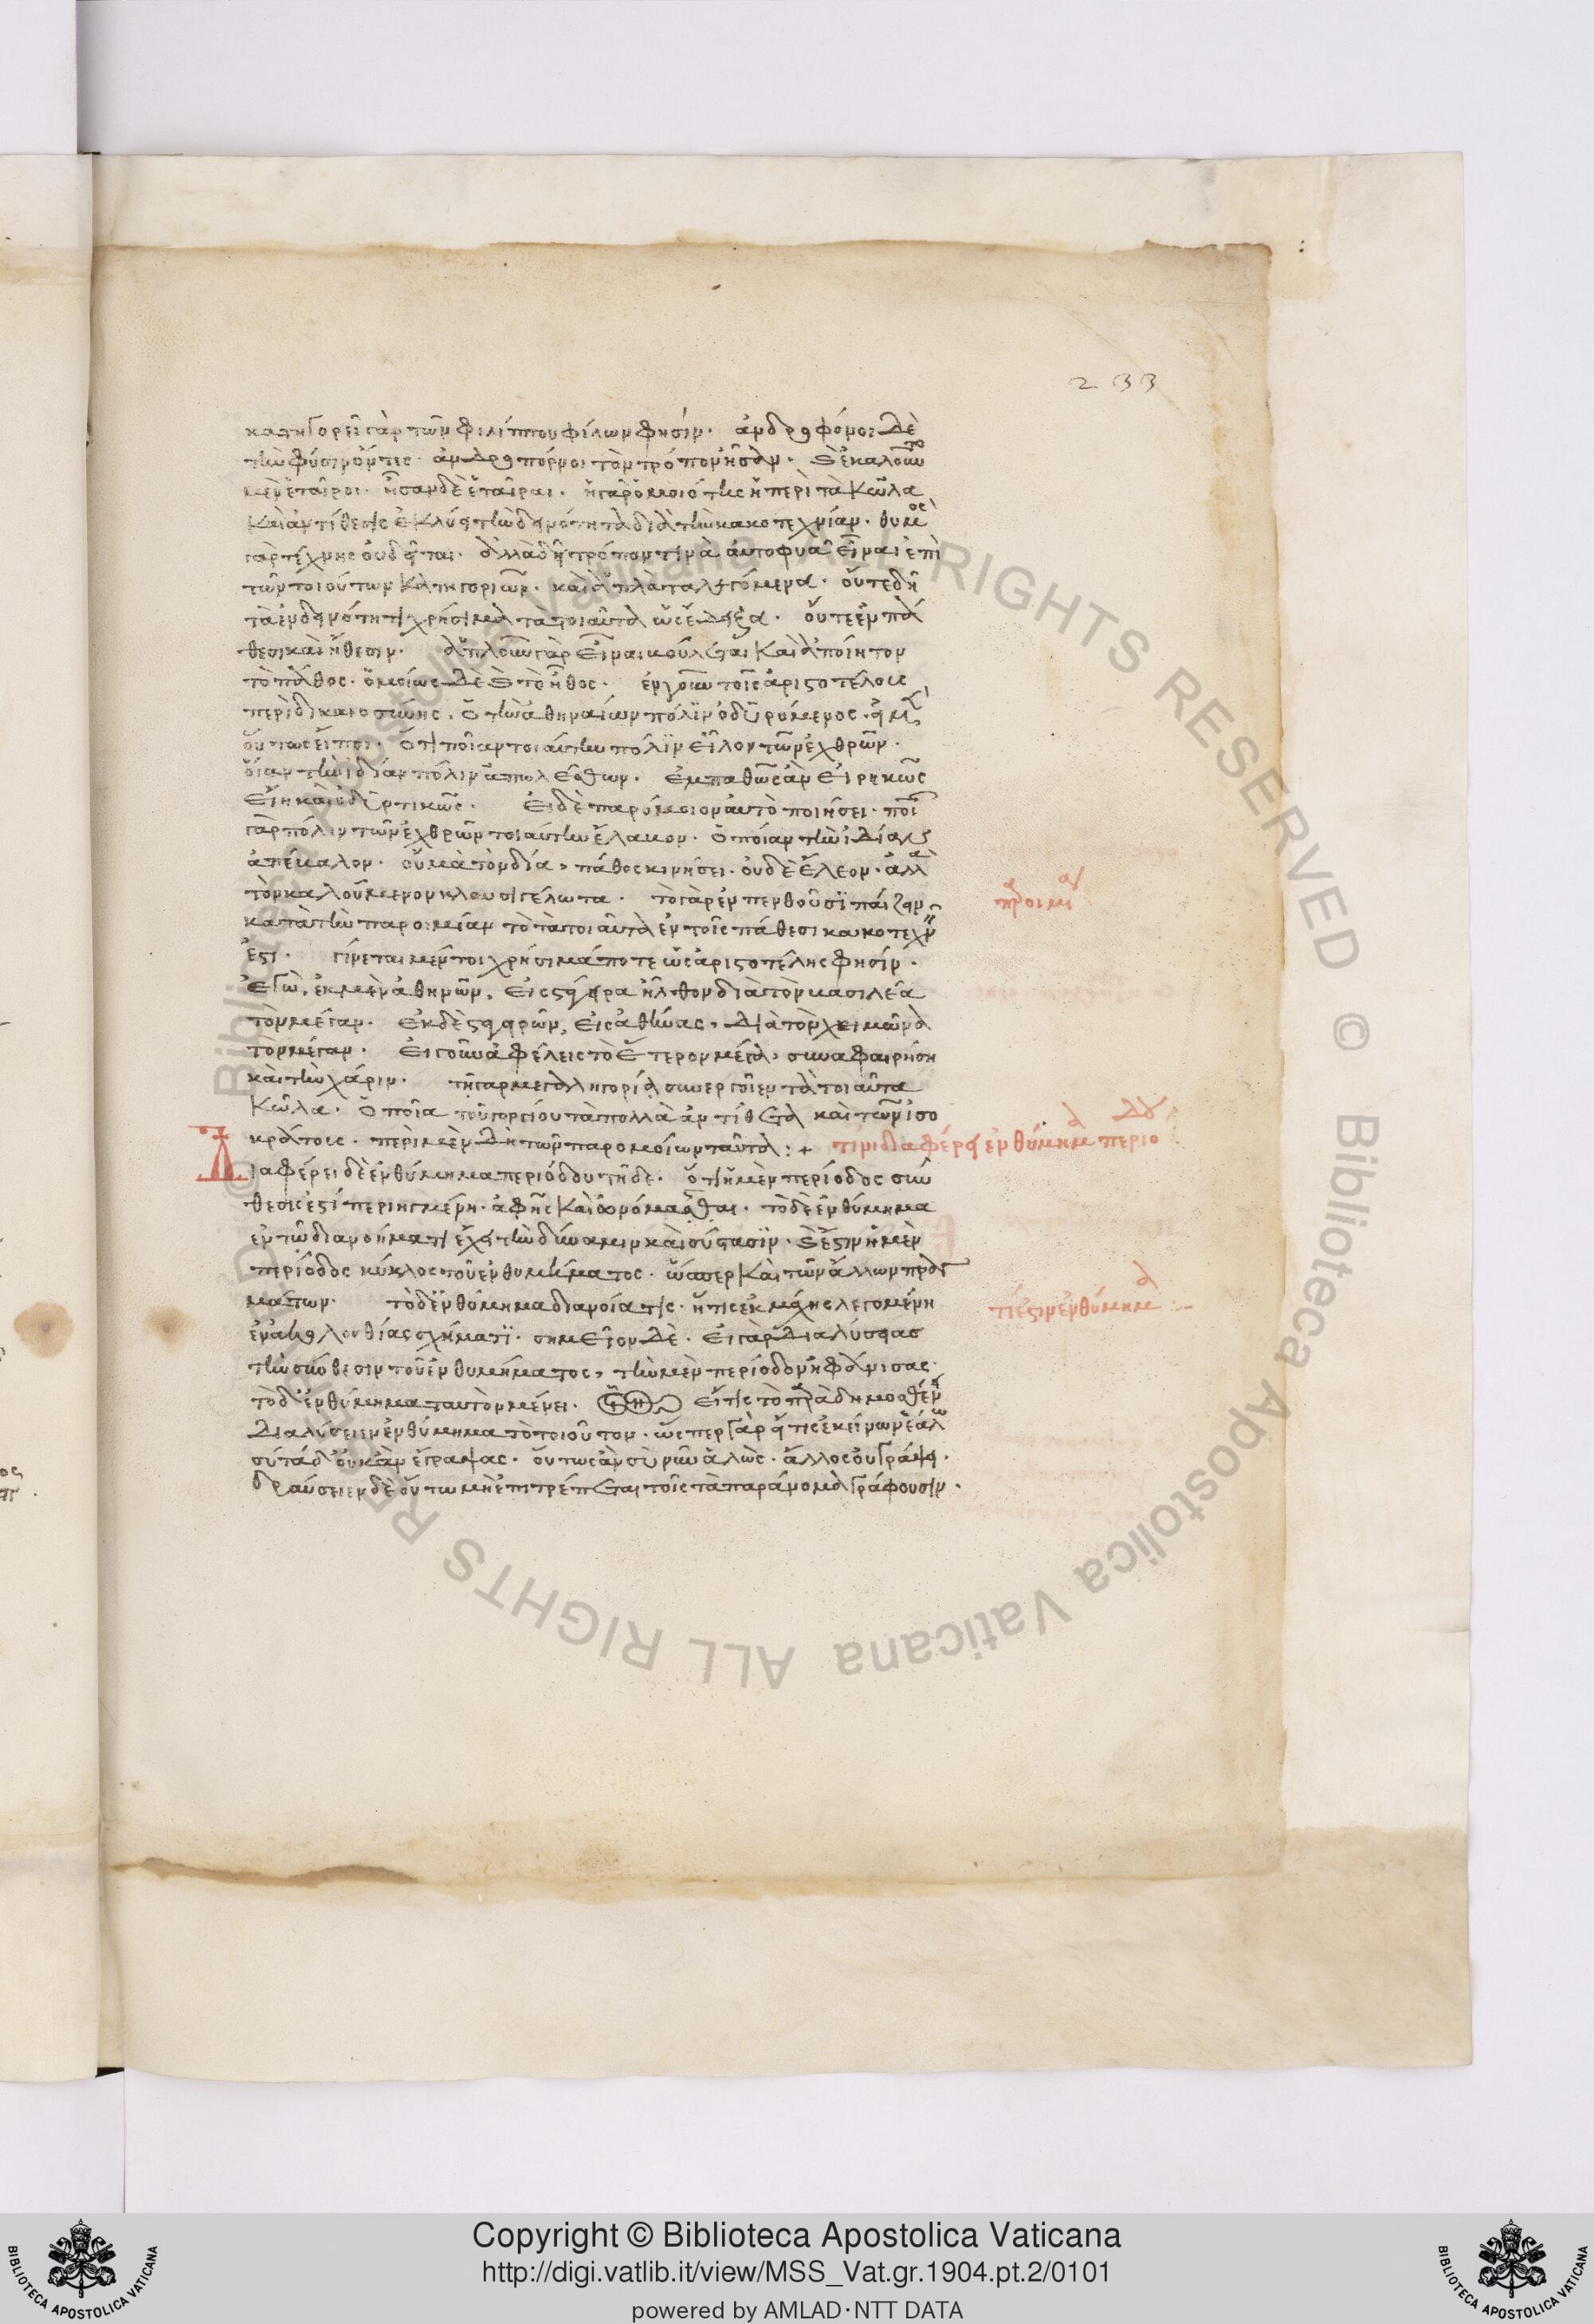 233
κατηγορεῖ γὰρ τῶν φιλίππου φίλων φησίν. ἀνδροφόνοι δὲ
τὴν φύσιν ὄντες. ἀνδρόπορνοι τὸν τρόπον ἦσαν. καὶ ἐκαλοῦντο
μὲν ἑταῖροι. ἦσαν δὲ ἑταῖραι. ἡ γὰρ ὁμοιότης ἡ περὶ τὰ κῶλα
καὶ ἀντίθεσις ἐκλύει τὴν δεινότητα διὰ τὴν κακοτεχνίαν. θυμὸς
γὰρ τέχνης οὐ δεῖται. ἀλλὰ δεῖ τρόπον τινὰ αὐτοφυᾶ εἶναι ἐπὶ
τῶν τοιούτων κατηγοριῶν. καὶ ἁπλᾶ τὰ λεγόμενα. οὔτε δῆ
τὰ ἐν δεινότητι χρήσιμα τὰ τοιαῦτα ὡς ἔδειξα. οὔτε ἐν πά
θεσι καὶ ἤθεσιν. ἁπλοῦν γὰρ εἶναι βούλεται καὶ ἀποίητον
τὸ πάθος. ὁμοίως δὲ καὶ τὸ ἦθος. ἐν γοῦν τοῖς ἀριστοτέλους
περὶ δικαιοσύνης. ὁ τὴν ἀθηναίων πόλιν ὀδυρόμενος. εἰ μὲν
οὕτως εἴποι. ὅτι ποίαν τοιαύτην πόλιν εἷλον τῶν ἐχθρῶν.
οἵαν τὴν ἰδίαν πόλιν ἀπώλεσαν. ἐμπαθῶς ἂν εἰρηκὼς
εἴη καὶ ὀδυρτικῶς. εἰ δὲ παρόμοιον αὐτὸ ποιήσει. ποί
γὰρ πόλιν τῶν ἐχθρῶν τοιαύτην ἔλαβον. ὁποίαν τὴν ἰδίαν
ἀπέβαλον. οὐ μὰ τὸν δία, πάθος κινήσει. οὐδὲ ἔλεον. ἀλλὰ
τὸν καλούμενον κλαυσιγέλωτα. τὸ γὰρ ἐν πενθοῦσι παίζειν
κατὰ τὴν παροιμίαν τὸ τὰ τοιαῦτα ἐν τοῖς πάθεσι κακοτεχνεῖν
ἐστι. γίνεται μέντοι χρήσιμά ποτε ὡς ἀριστοτέλης φησίν.
ἐγὼ, ἐκ μὲν ἀθηνῶν, εἰς στάγειρα ἦλθον διὰ τὸν βασιλέα
τὸν μέγαν. ἐκ δὲ σταγείρων, εἰς ἀθήνας, διὰ τὸν χειμῶνα
τὸν μέγαν. εἰ γοῦν ἀφέλεις τὸ ἕτερον μέγα, συναφαιρήσῃ
καὶ τὴν χάριν. τῇ γὰρ μεγαληγορίᾳ συνεργοῖεν τὰ τοιαῦτα
κῶλα. ὁποῖα τοῦ γοργίου τὰ πολλὰ ἀντίθετα καὶ τῶν ἰσο
κράτους. περὶ μὲν δὴ τῶν παρομοίων ταῦτα :+ τίνι διαφέρει ἐνθύμημα περιόδου
Διαφέρει δὲ ἐνθύμημα περιόδου τῇδε. ὅτι ἡ μὲν περίοδος σύν
θεσίς ἐστι περιηγμένη. ἀφ' ἧς καὶ ὠνόμασται. τὸ δὲ ἐνθύμημα
ἐν τῷ διανοήματι ἔχει τὴν δύναμιν καὶ σύστασιν. καὶ ἔστιν ἡ μὲν
περίοδος κύκλος τοῦ ἐνθυμήματος. ὥσπερ καὶ τῶν ἄλλων πραγ
μάτων. τὸ δ' ἐνθύμημα διάνοιά τις. ἤτις ἐκ μάχης λεγομένη
ἐν ἀκολουθίας σχήματι. σημεῖον δέ. εἰ γὰρ διαλύσειας
τὴν σύνθεσιν τοῦ ἐνθυμήματος, τὴν μὲν περίοδον ἠφάνισας.
τὸ δ' ἐνθύμημα ταυτὸν μένει. εἴ τις τὸ παρὰ δημοσθένει
διαλύσειεν ἐνθύμημα τὸ τοιοῦτον. ὥσπερ γὰρ εἴ τις ἐκείνων ἑάλω
σὺ τάδ' οὐκ ἂν ἔγραψας. οὕτως ἂν σὺ νῦν ἁλῷς. ἄλλος οὐ γράψει.
διαλύσειεν δὲ οὕτω μὴ ἐπιτρέπεται τοῖς τὰ παράνομα γράφουσιν.
παροιμία
τί ἐστιν ἐνθύμημα :-
ALL RIGHTS RESERVED © Biblioteca Apostolica Vaticana
Copyright © Biblioteca Apostolica Vaticana
http://digi.vatlib.it/view/MSS_Vat.gr.1904.pt.2/0101
powered by AMLAD·NTT DATA
BIBLIOTECA APOSTOLICA VATICANA
BIBLIOTECA APOSTOLICA VATICANA